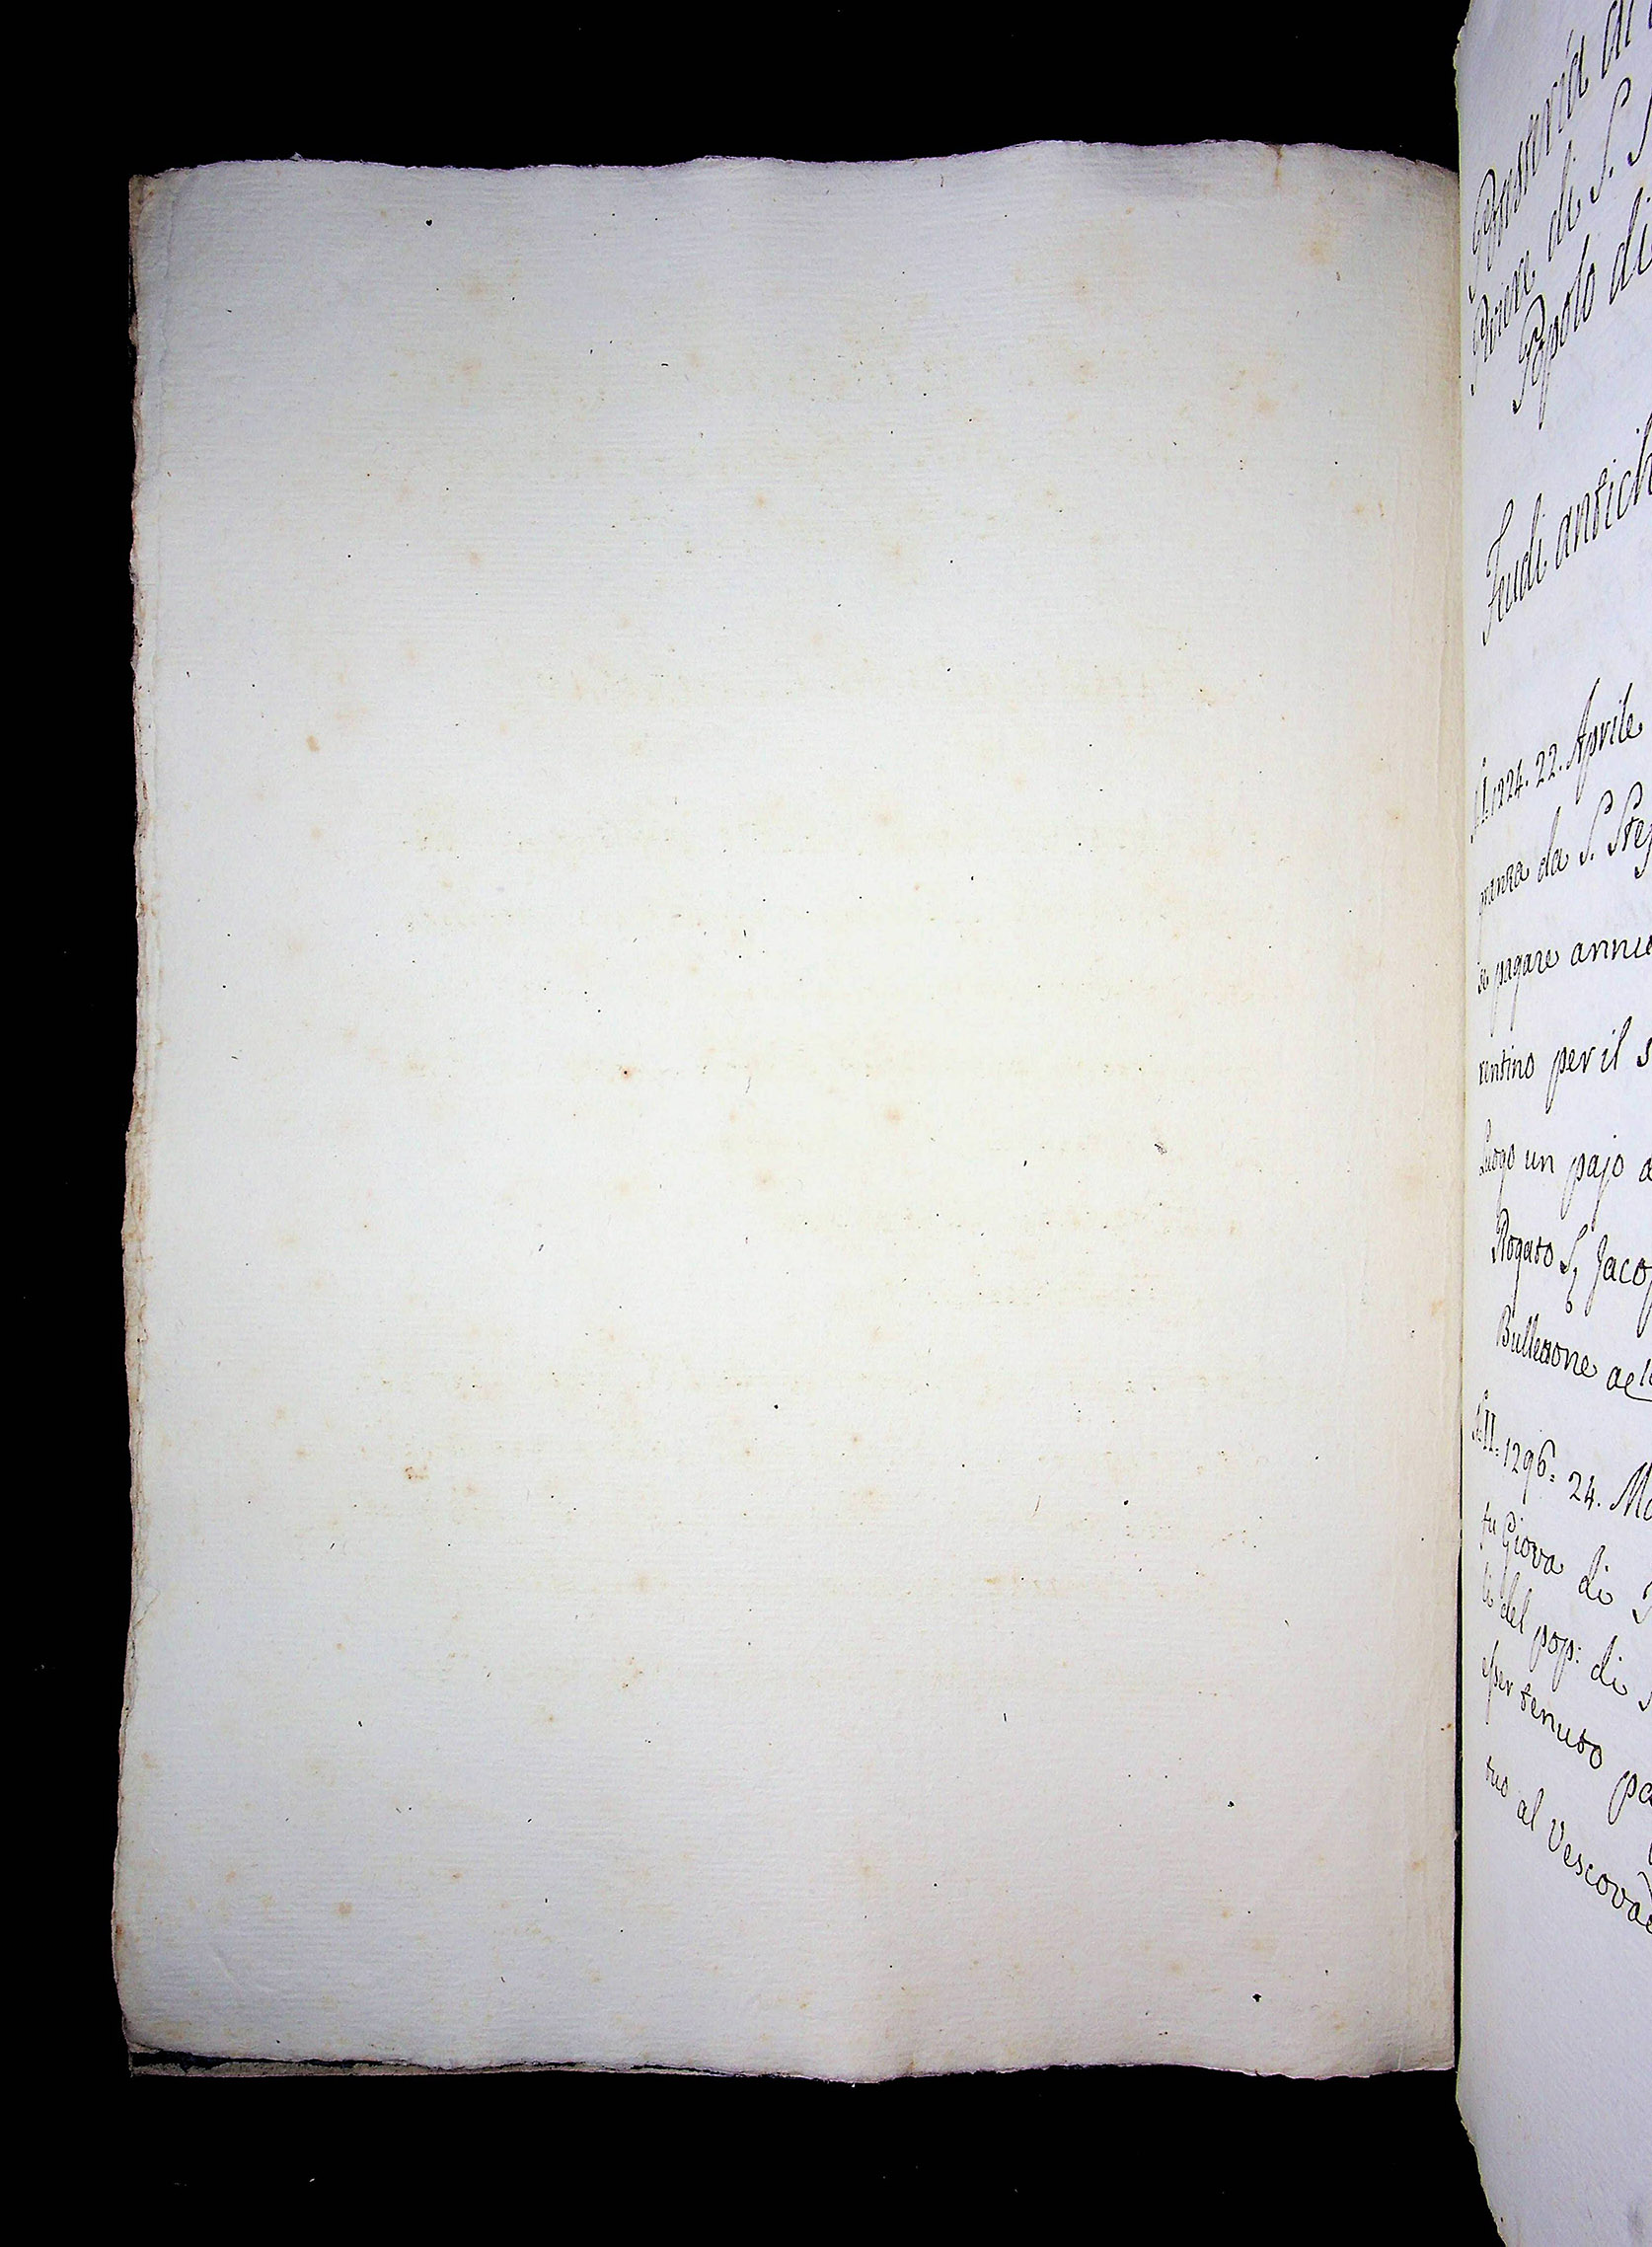 di
Piviere di S.
Popolo di
Feudi antich
N. I. 1224. 22. Aprile
da S. Step
pagare annu
rentino per il s
Luogo un pajo d
Rogato S. Jacop
Bullettone ac
N. II. 1296. 24. Ma
fu Giova di
le del pop: di S
esser tenuto pa
tuo al Vescova